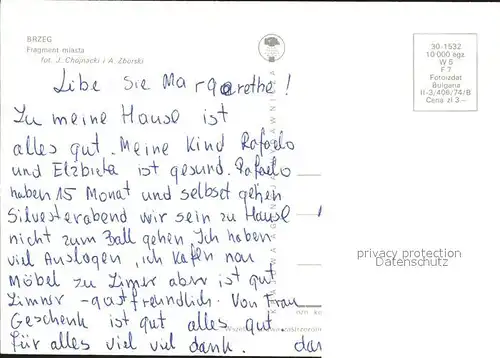 BRZEG
Fragment miasta
fot. J. Chojnacki i A. Zborski
30-1532
10 000 egz.
W 5
F 7
Fotoizdat
Bulgaria
II-3/406/74/B
Cena zł 3.—
Libe Sie Margarethe!
Zu meine Hausl ist
alles gut. Meine Kind Rafaelo
und Elzbieta ist gesund. Rafaelo
haben 15 Monat und selbset gehen
Silvesterabend wir sein zu Hausl
nicht zum Ball gehen Ich haben
viel Auslogen, ich kafen nou
Möbel zu Zimer aber ist gut
Zimner -gastfreundlich. Von Frau
Geschenk ist gut alles gut.
für alles viel viel dank.
KRAJOWA AGENCJA WYDAWNICZA
privacy protection
Datenschutz